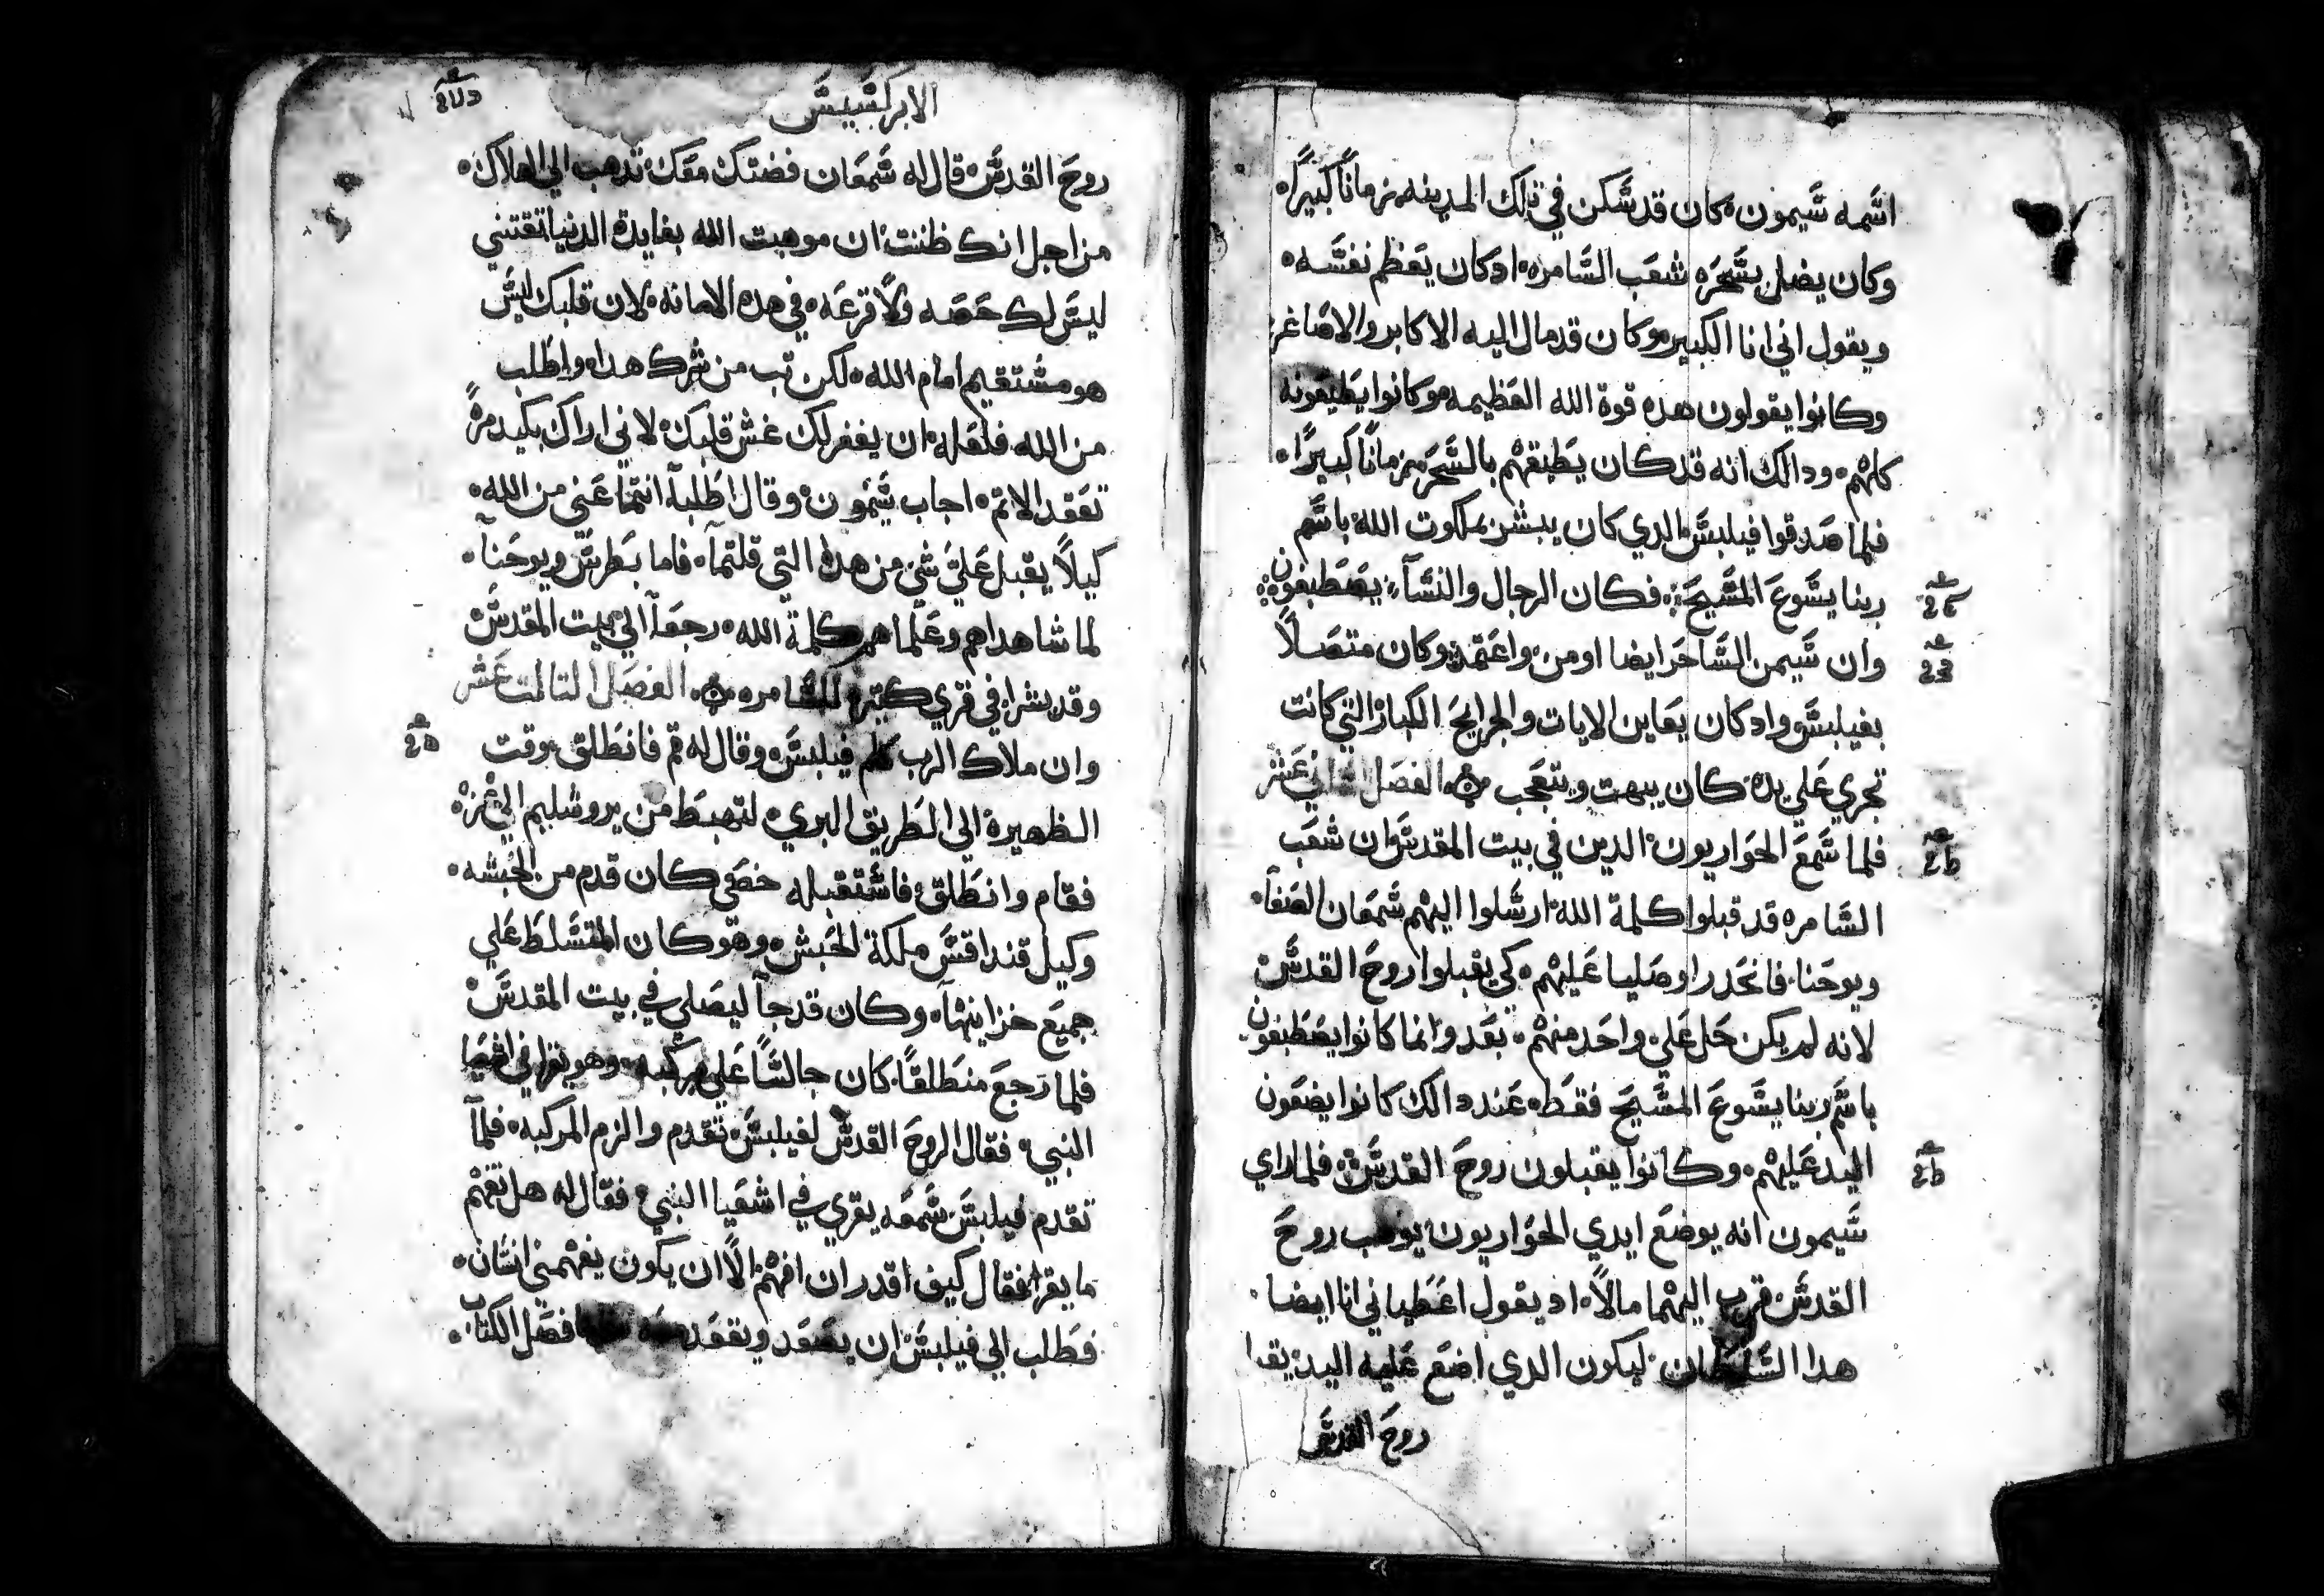 اسمه شيمون كان قد سكن في تلك المدينه زمانًا كبيرًا
وكان يضل بسحره شعب السامره اد كان يعظم نفسه
ويقول اني انا الكبير وكان قد مال اليه الاكابر والاصاغر
وكانوا يقولون هده قوة الله العظيمه وكانوا يطيعونه
كلهم ودالك انه قد كان يطيعهم بالسحر زمانًا كبيرًا
فلما صدقوا فيلبس الدي كان يبشر بملكوت الله باسم
ربنا يسوع المسيح فكان الرجال والنسآء يصطبغون
وان شيمن الساحر ايضا اومن واعتمد وكان متصلًا
بفيلبس واد كان يعاين الايات والجرايح الكبار التي كانت
تجري علي يده كان يبهت ويتعجب الفصل الثاني عشر
فلما سمع الحواريون الدين في بيت المقدس ان شعب
السامره قد قبلوا كلمة الله ارسلوا اليهم شمعان الصفآ
ويوحنا فانحدرا وصليا عليهم كي يقبلوا روح القدس
لانه لم يكن حل علي واحد منهم بعد وانما كانوا يصطبغون
باسم ربنا يسوع المسيح فقط عند دالك كانوا يضعون
اليد عليهم وكانوا يقبلون روح القدس فلما راي
شيمون انه يوضع ايدي الحواريون يوهب روح
القدس قرب اليهما مالًا اد يقول اعطياني انا ايضا
هدا السلطان ليكون الدي اضع عليه اليد يقبل
روح القدس
الابركسيس
روح القدس قال له شمعان فضتك معك تدهب الي الهلاك
من اجل انك ظننت ان موهبت الله بفايدة الدنيا تقتني
ليس لك حصه ولا قرعه في هده الامانه لان قلبك ليس
هو مستقيم امام الله لكن تب من شرك هدا واطلب
من الله فلعله ان يغفر لك غش قلبك لاني اراك بكيد مرً
تعقد الاتم اجاب شيمون وقال اطلبآ انتما عني من الله
كيلا يقبل علي شي من هده التي قلتمآ فاما بطرس ويوحنآ
لما شاهداهم وعلماهم كلمة الله رجعآ الي بيت المقدس
وقد بشرا في قري كتيره للسامره الفصل التالت عشر
وان ملاك الرب كلم فيلبس وقال له قم فانطلق وقت
الظهيرة الي الطريق البري لتهبط من يروشليم الي غزه
فقام وانطلق فاستقبله خصي كان قدم من الحبشه
وكيل قنداقس ملكة الحبش وهو كان المتسلط علي
جميع خزاينهآ وكان قد جآ ليصلي في بيت المقدس
فلما رجع منطلقًا كان جالسًا علي مركبه وهو يقرا في اشعيا
النبي فقال الروح القدس لفيلبس تقدم والزم المركبه فلمآ
تقدم فيلبس سمعه يقري في اشعيا النبي فقال له هل تفهم
ما يقرا فقال كيف اقدر ان افهم الا ان يكون يفهمني انسان
فطلب الي فيلبس ان يصعد ويقعد فصل الكتاب